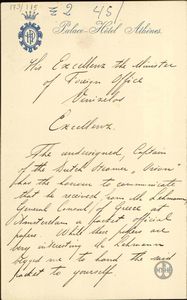 173/115
2
45/
Palace Hôtel Athènes.
His Excellenz the Minister
of Foreign Office
Venizelos
Excellenz.
The undersigned, Captain
of the Dutch Steamer "Orion"
has the honour to communicate
that he received from Mr Lehmann
General Consul of Greece
Amsterdam a packet official
papers. While these papers are
very interesting Mr Lehmann
begged me to hand the said
packet to yourself.